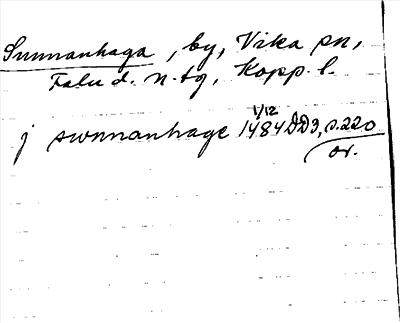 Sunnanhaga, by, Vika sn,
Falu d. n. tg, Kopp. l.
j swnnanhage 1484 1/12 DD3, s. 220
or.